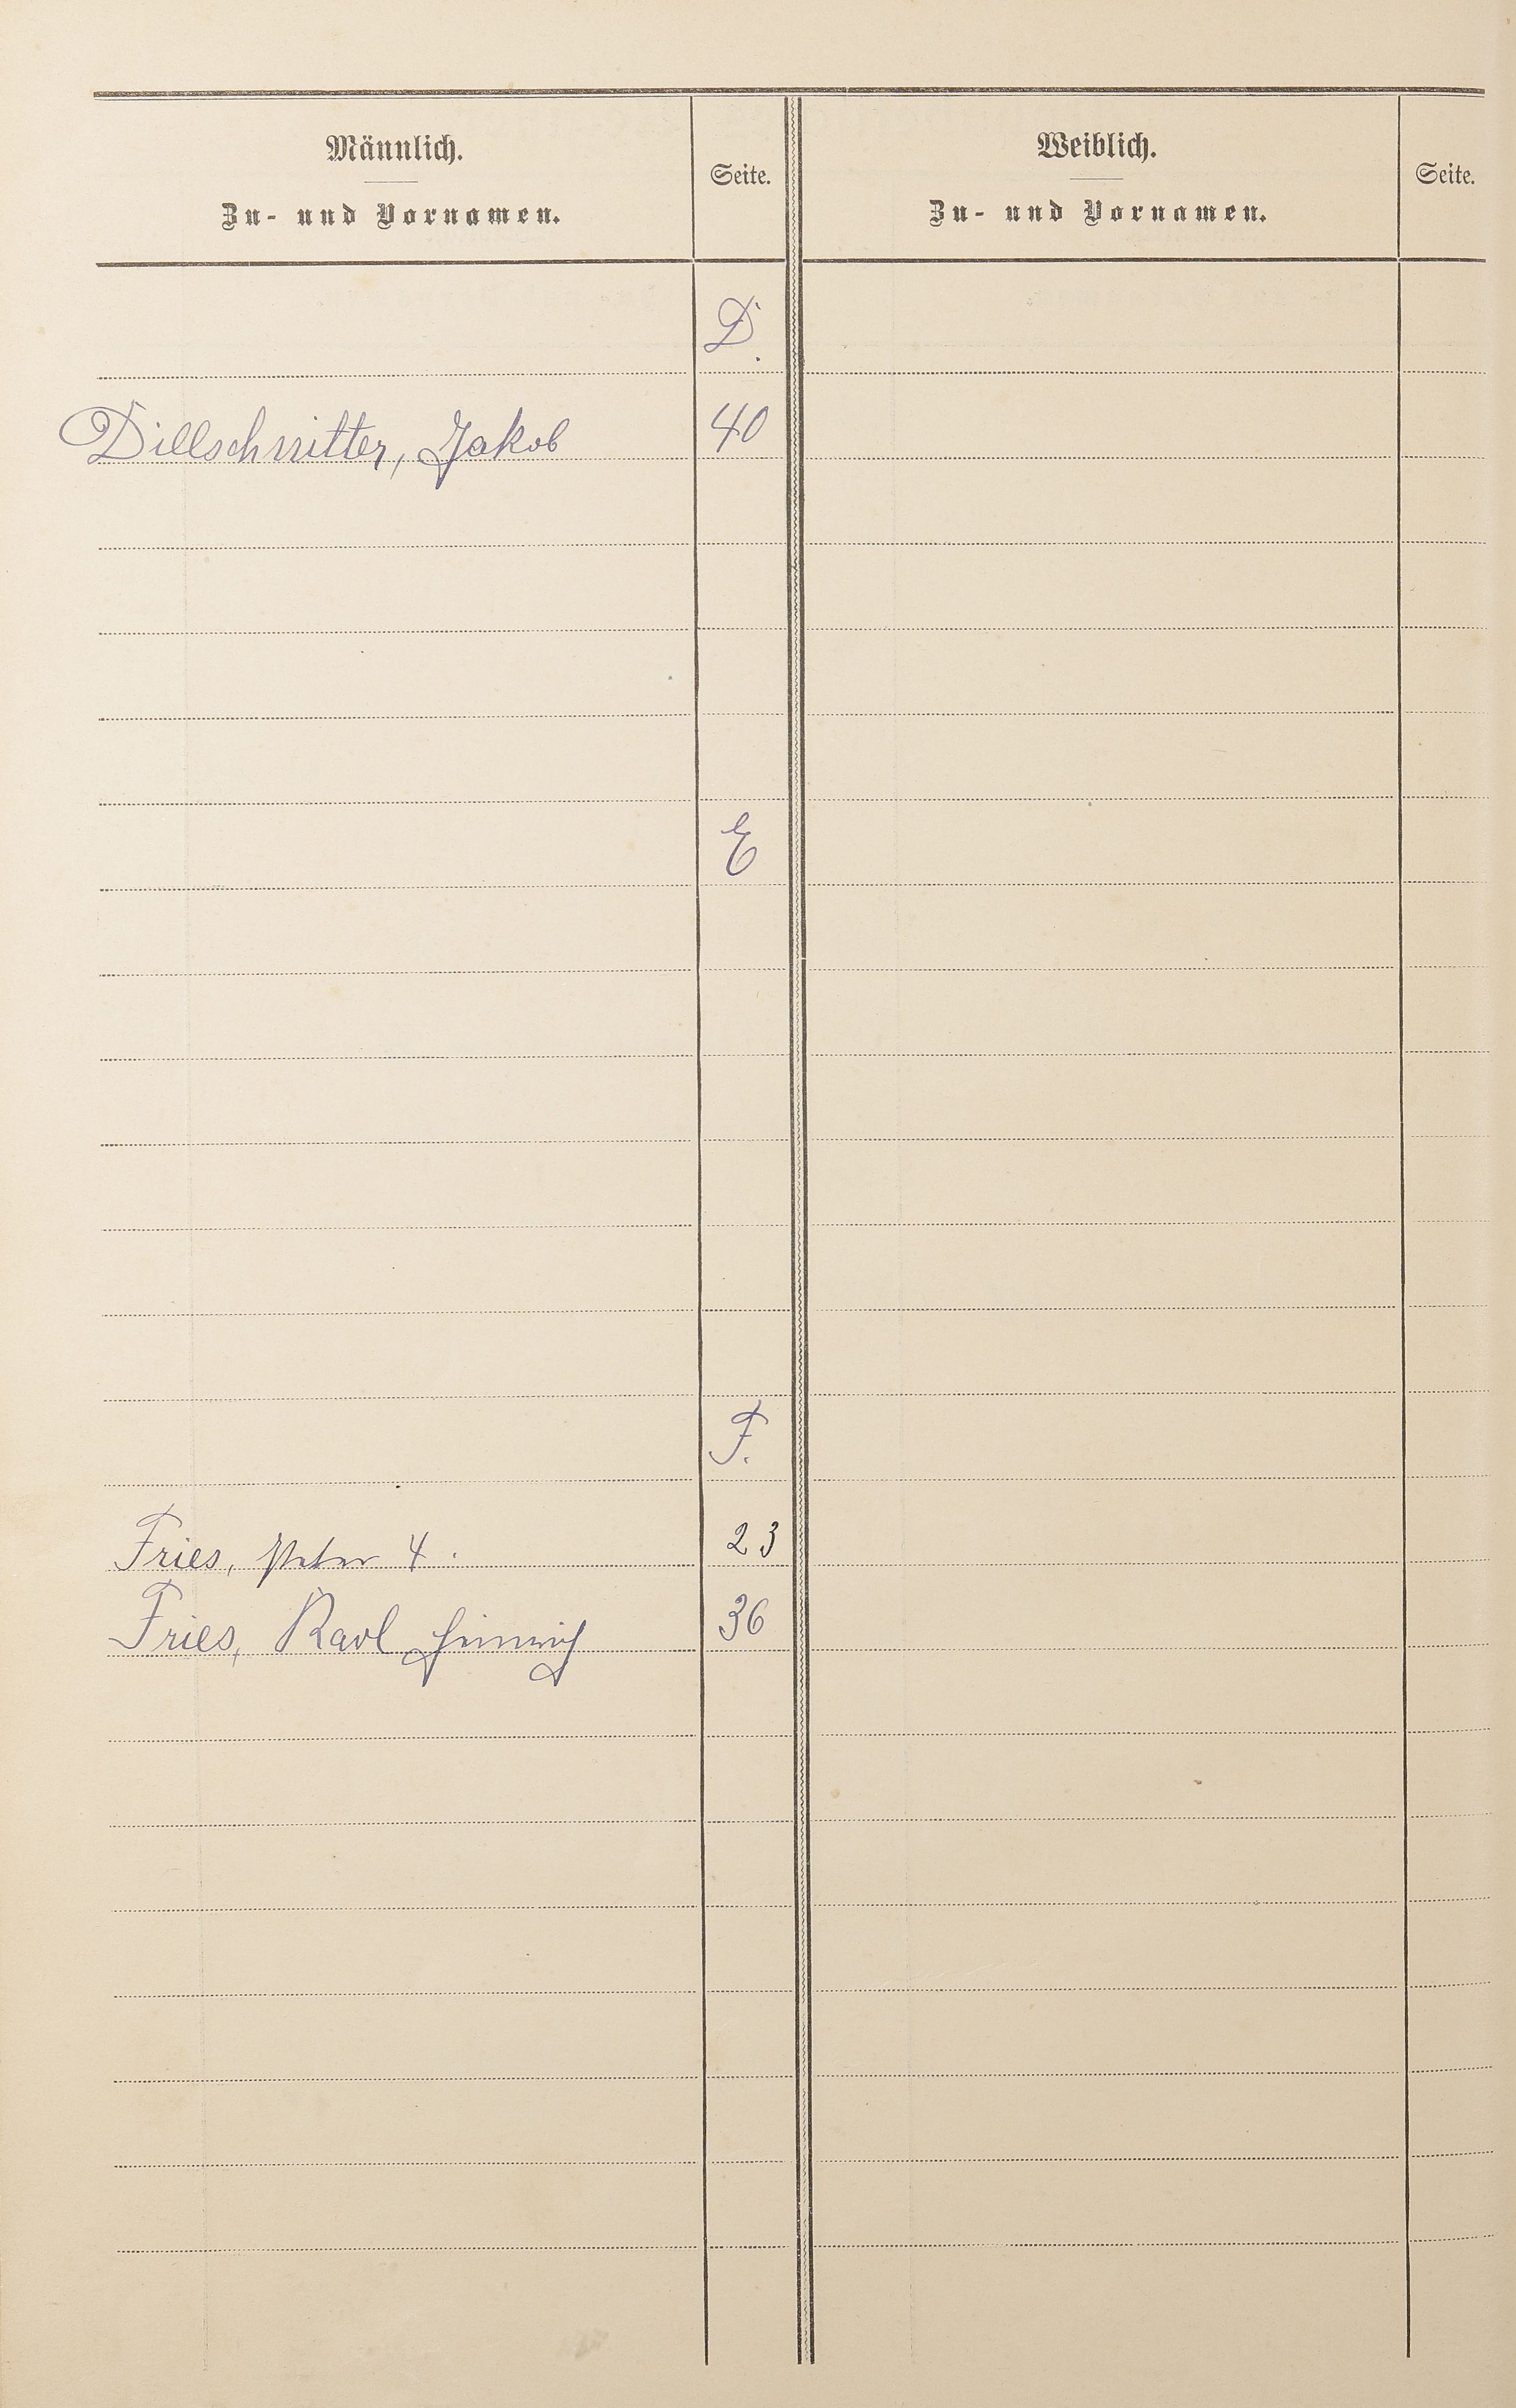 Männlich.
Zu- und Vornamen.
Seite.
Weiblich.
Zu- und Vornamen.
Seite.
D.
Dillschnitter, Jakob 40
E
F.
Fries, Peter 4. 23
Fries, Karl Heinrich 36